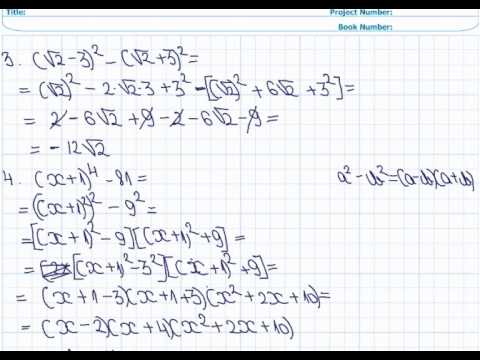 Title:
Project Number:
Book Number:
3. (√2-3)² - (√2+3)² =
= (√2)² - 2·√2·3 + 3² - [(√2)² + 6√2 + 3²] =
= 2 - 6√2 + 9 - 2 - 6√2 - 9 =
= - 12√2
4. (x+1)⁴ - 81 =
a² - b² = (a-b)(a+b)
= ((x+1)²)² - 9² =
= [(x+1)² - 9][(x+1)² + 9] =
= [(x+1)² - 3²][(x+1)² + 9] =
= (x+1-3)(x+1+3)(x² + 2x + 10) =
= (x-2)(x+4)(x² + 2x + 10)